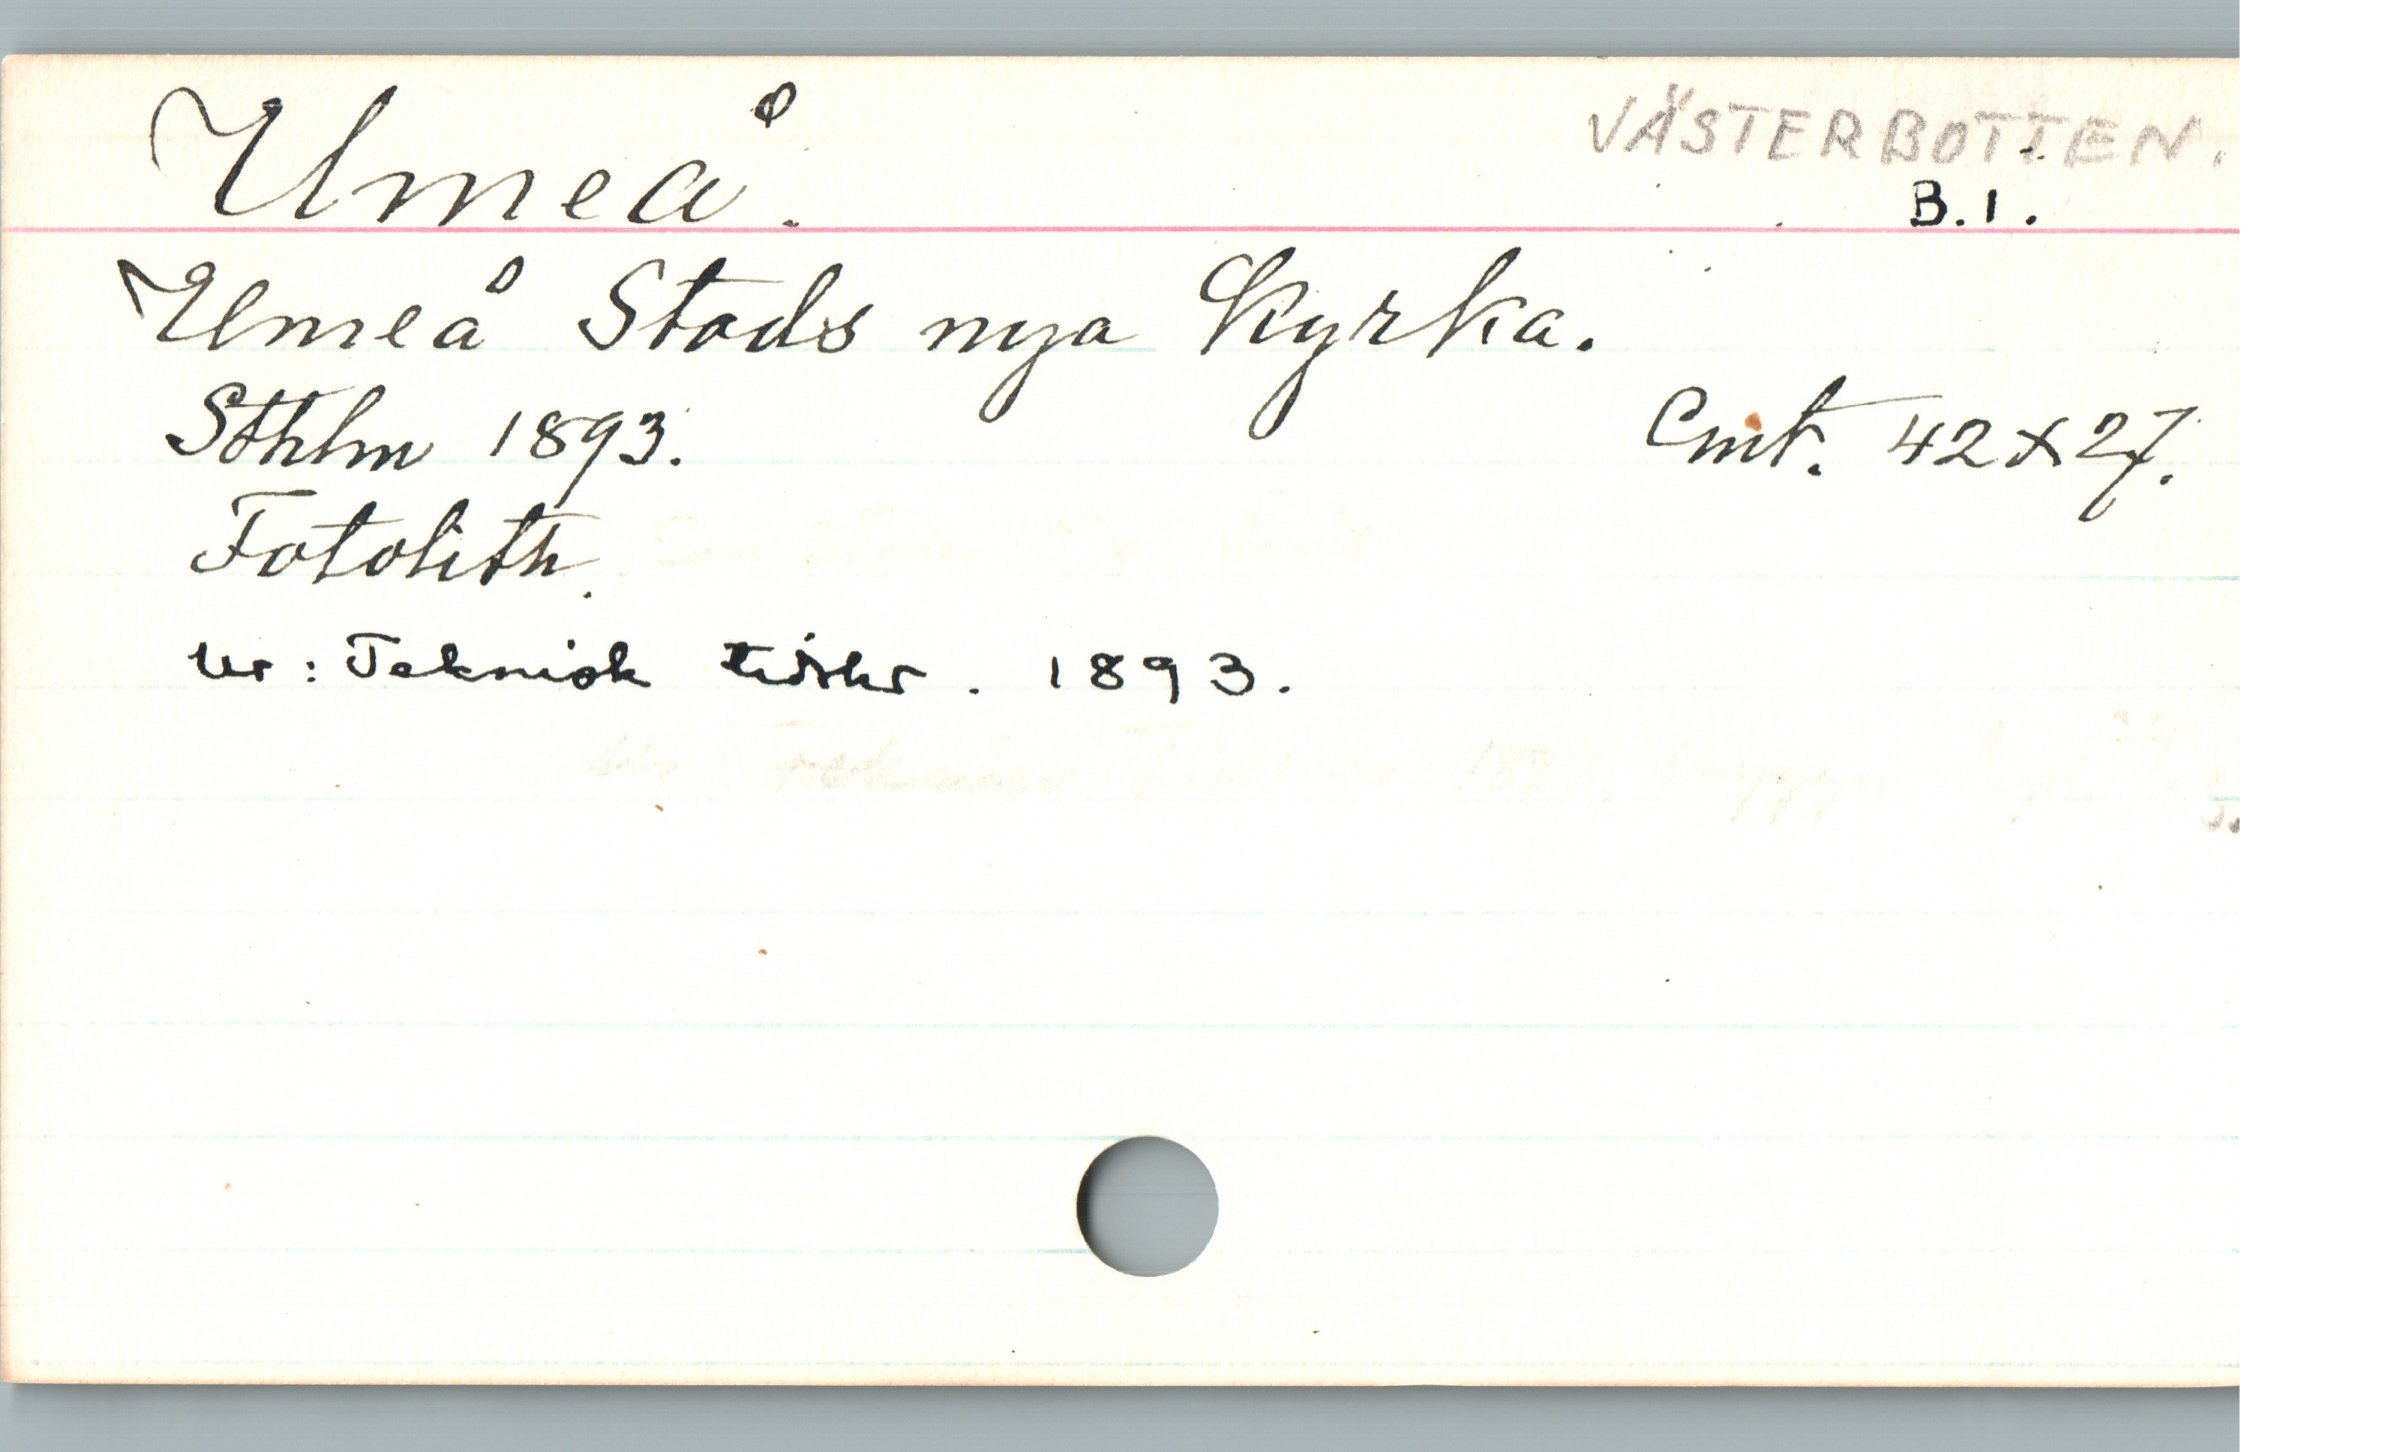 Umeå.
VÄSTERBOTTEN.
B.1.
Umeå Stads nya Kyrka.
Sthlm 1893.
Cmt. 42x27.
Fotolith.
Ur: Teknisk tidskr. 1893.